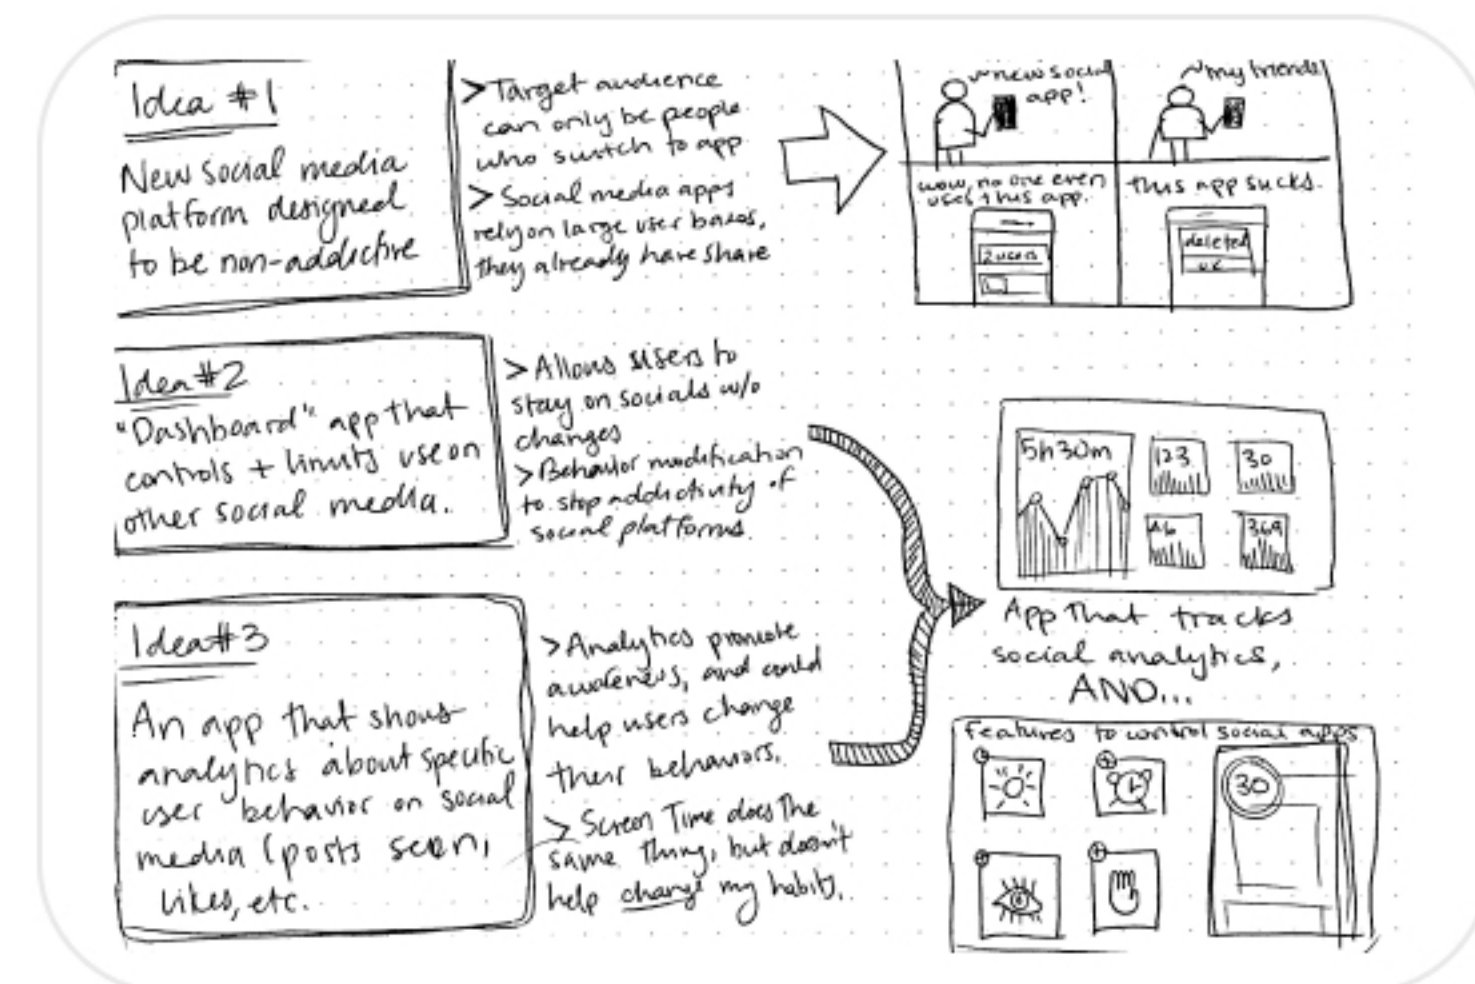 Idea #1
New social media
platform designed
to be non-addictive
> Target audience
can only be people
who switch to app
> Social media apps
rely on large user bases,
they already have share
~new social
app!
~my friends
wow, no one even
uses this app.
this app sucks.
2 users
deleted
Idea #2
"Dashboard" app that
controls + limits use on
other social media.
> Allows users to
stay on socials w/o
changes
> Behavior modification
to stop addictivity of
social platforms.
5h 30m
123
30
46
369
App that tracks
social analytics,
AND...
Idea #3
An app that shows
analytics about specific
user behavior on social
media (posts seen,
likes, etc.
> Analytics promote
awareness, and could
help users change
their behaviors.
> Screen Time does the
same thing, but doesn't
help change my habits.
Features to control social apps
30